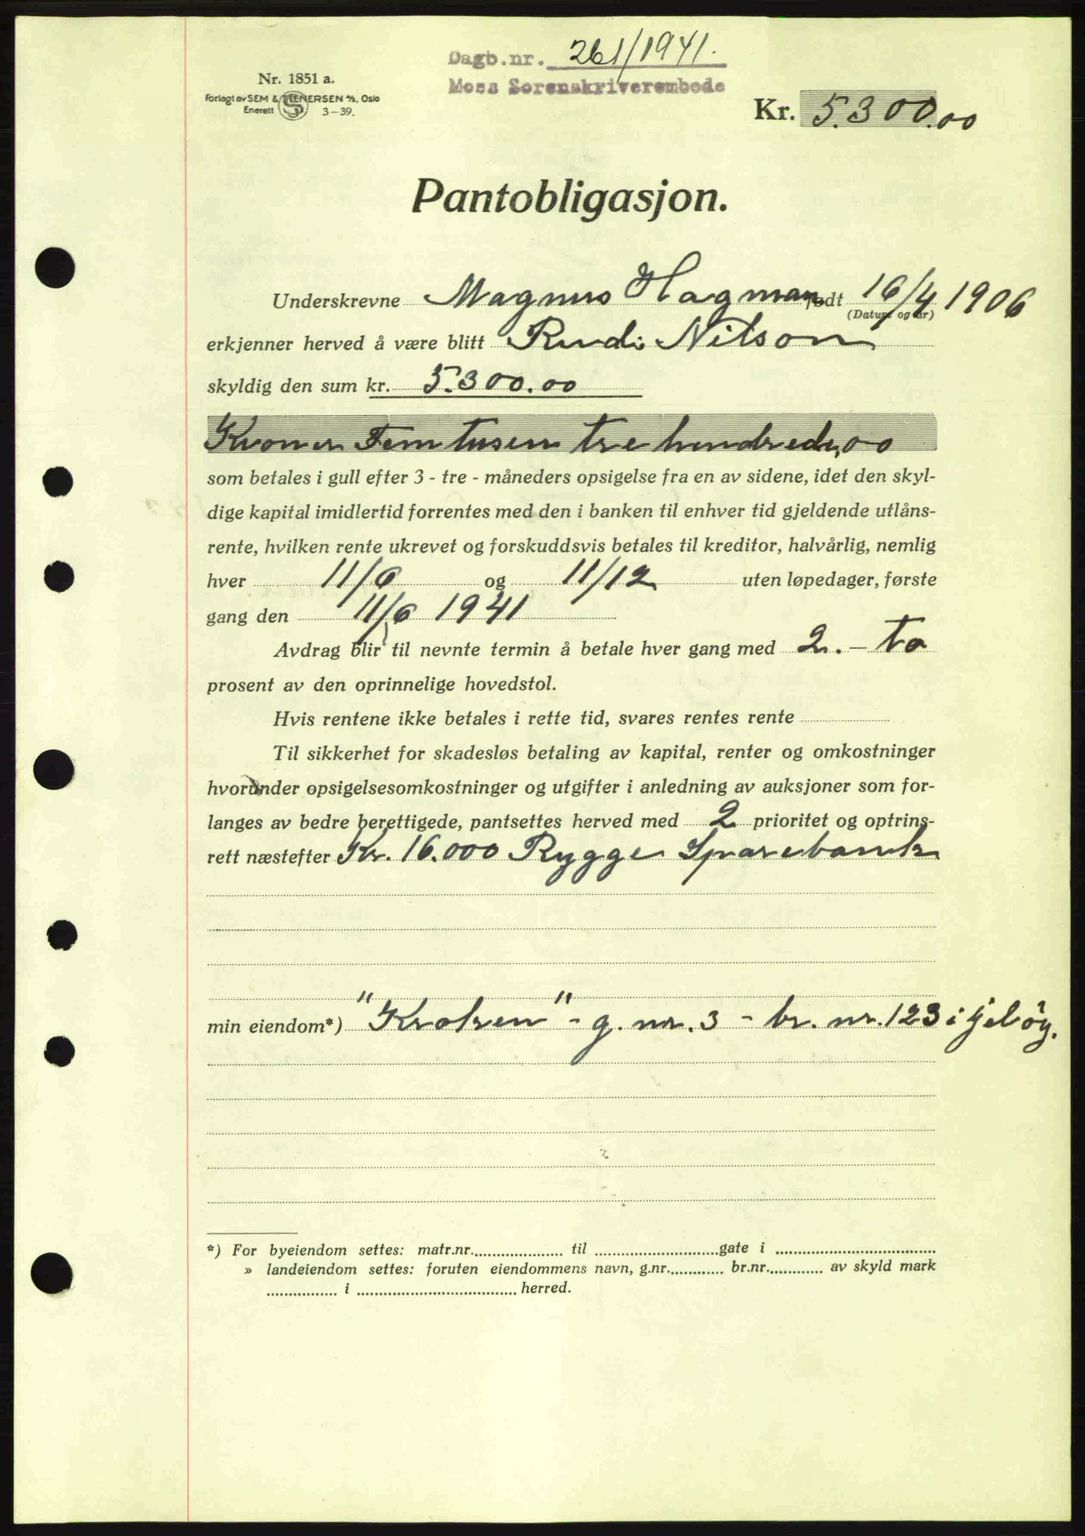 Dagb.nr. 261/1941.
Moss Sorenskriverembede
Nr. 1851 a.
Forlagt av SEM & STENERSEN A/S, Oslo
Enerett 3-39.
Kr. 5.300.00
Pantobligasjon.
Underskrevne Magnus Hagman født 16/4 1906
(Datum og år)
erkjenner herved å være blitt Rudi Nilson
skyldig den sum kr. 5.300.00
Kroner Femtusen tre hundrede,00
som betales i gull efter 3 - tre - måneders opsigelse fra en av sidene, idet den skyl-
dige kapital imidlertid forrentes med den i banken til enhver tid gjeldende utlåns-
rente, hvilken rente ukrevet og forskuddsvis betales til kreditor, halvårlig, nemlig
hver 11/6 og 11/12 uten løpedager, første
gang den 11/6 1941
Avdrag blir til nevnte termin å betale hver gang med 2. - to
prosent av den oprinnelige hovedstol.
Hvis rentene ikke betales i rette tid, svares rentes rente
Til sikkerhet for skadesløs betaling av kapital, renter og omkostninger
hvorunder opsigelsesomkostninger og utgifter i anledning av auksjoner som for-
langes av bedre berettigede, pantsettes herved med 2 prioritet og optrins-
rett næstefter Kr. 16.000 Rygge Sparebank
min eiendom*) "Kroken" - g. nr. 3 - br. nr. 123 i Jeløy.
*) For byeiendom settes: matr.nr. til gate i
» landeiendom settes: foruten eiendommens navn, g.nr. br.nr. av skyld mark
i herred.